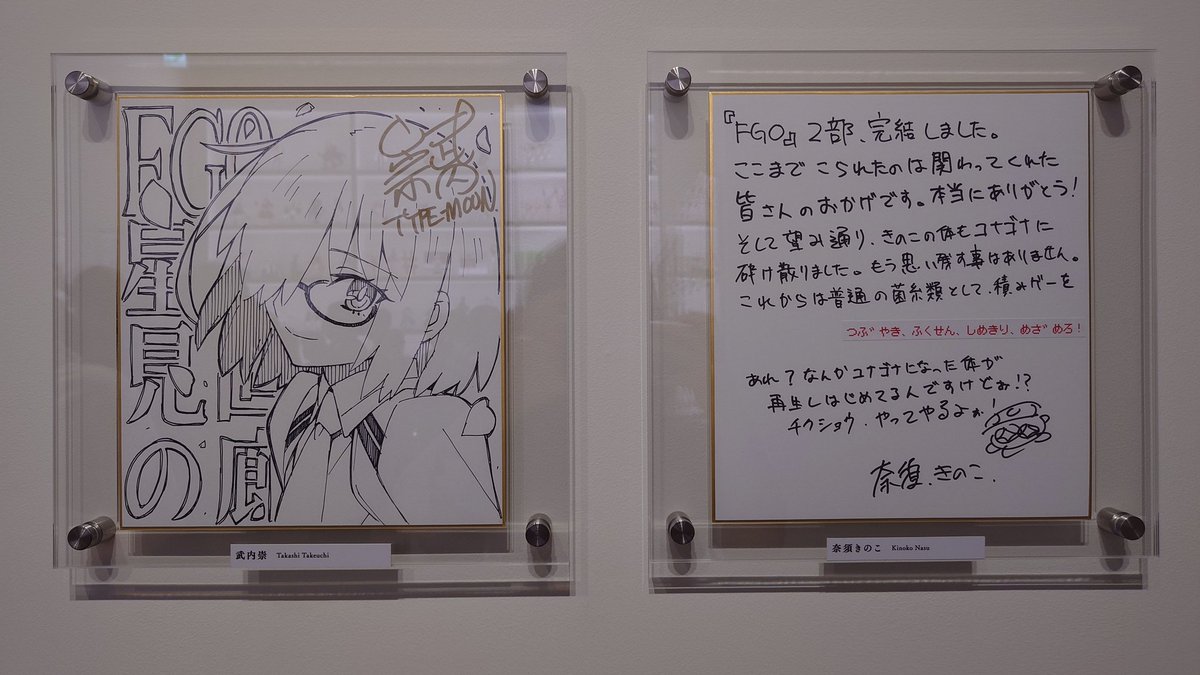 FGO
星見の
回廊
TYPE-MOON
武内崇 Takashi Takeuchi
『FGO』2部、完結しました。
ここまで こられたのは関わってくれた
皆さんのおかげです。本当にありがとう!
そして望み通り、きのこの体もコナゴナに
砕け散りました。もう思い残す事はありません。
これからは普通の菌糸類として、積みゲーを
つぶやき、ふくせん、しめきり、めざめろ!
あれ?なんかコナゴナになった体が
再生しはじめてるんですけどぉ!?
チクショウ、やってやるよォ!
奈須.きのこ.
奈須きのこ Kinoko Nasu